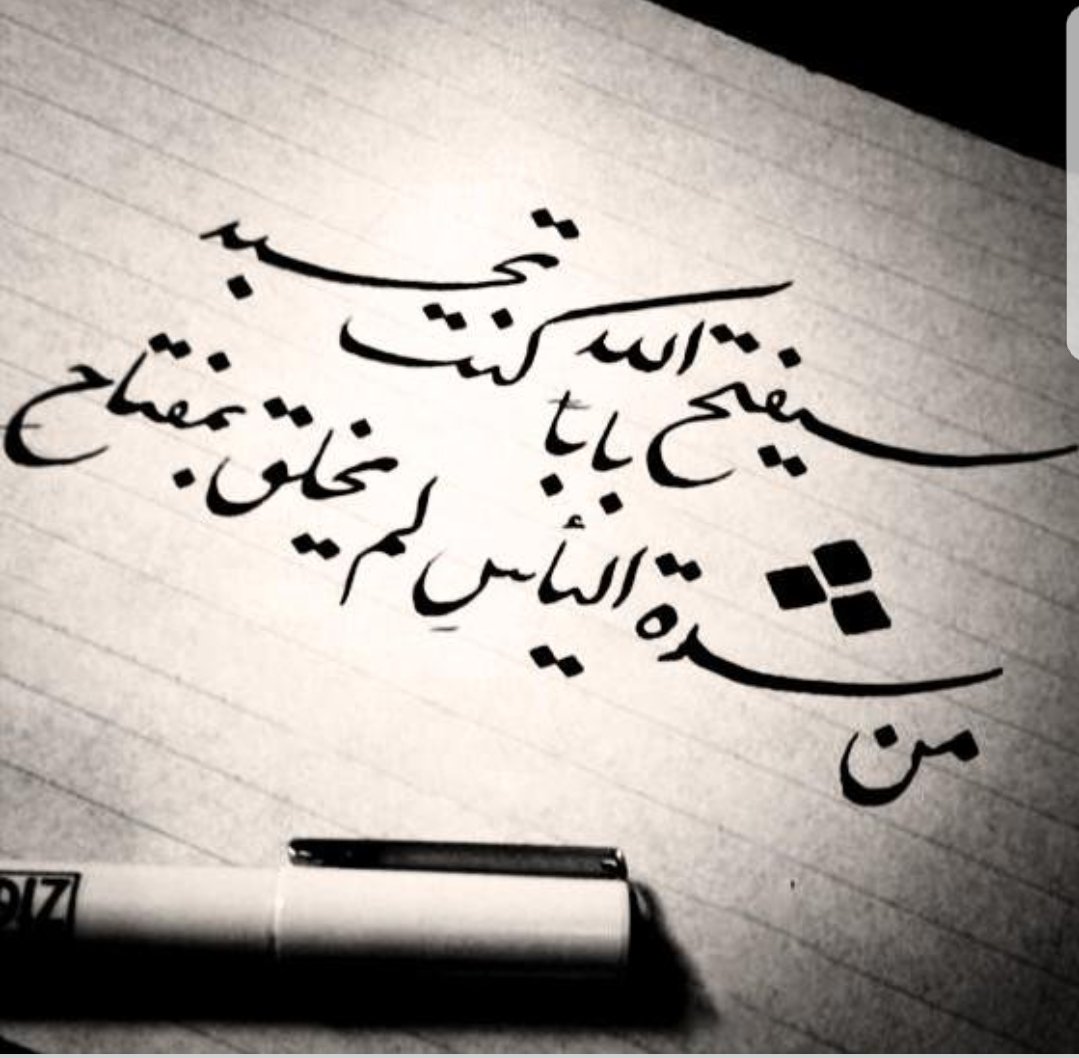 سيفتح الله باباً كنت تحسبه
من شدة اليأسِ لم يخلق بمفتاح
ZIG